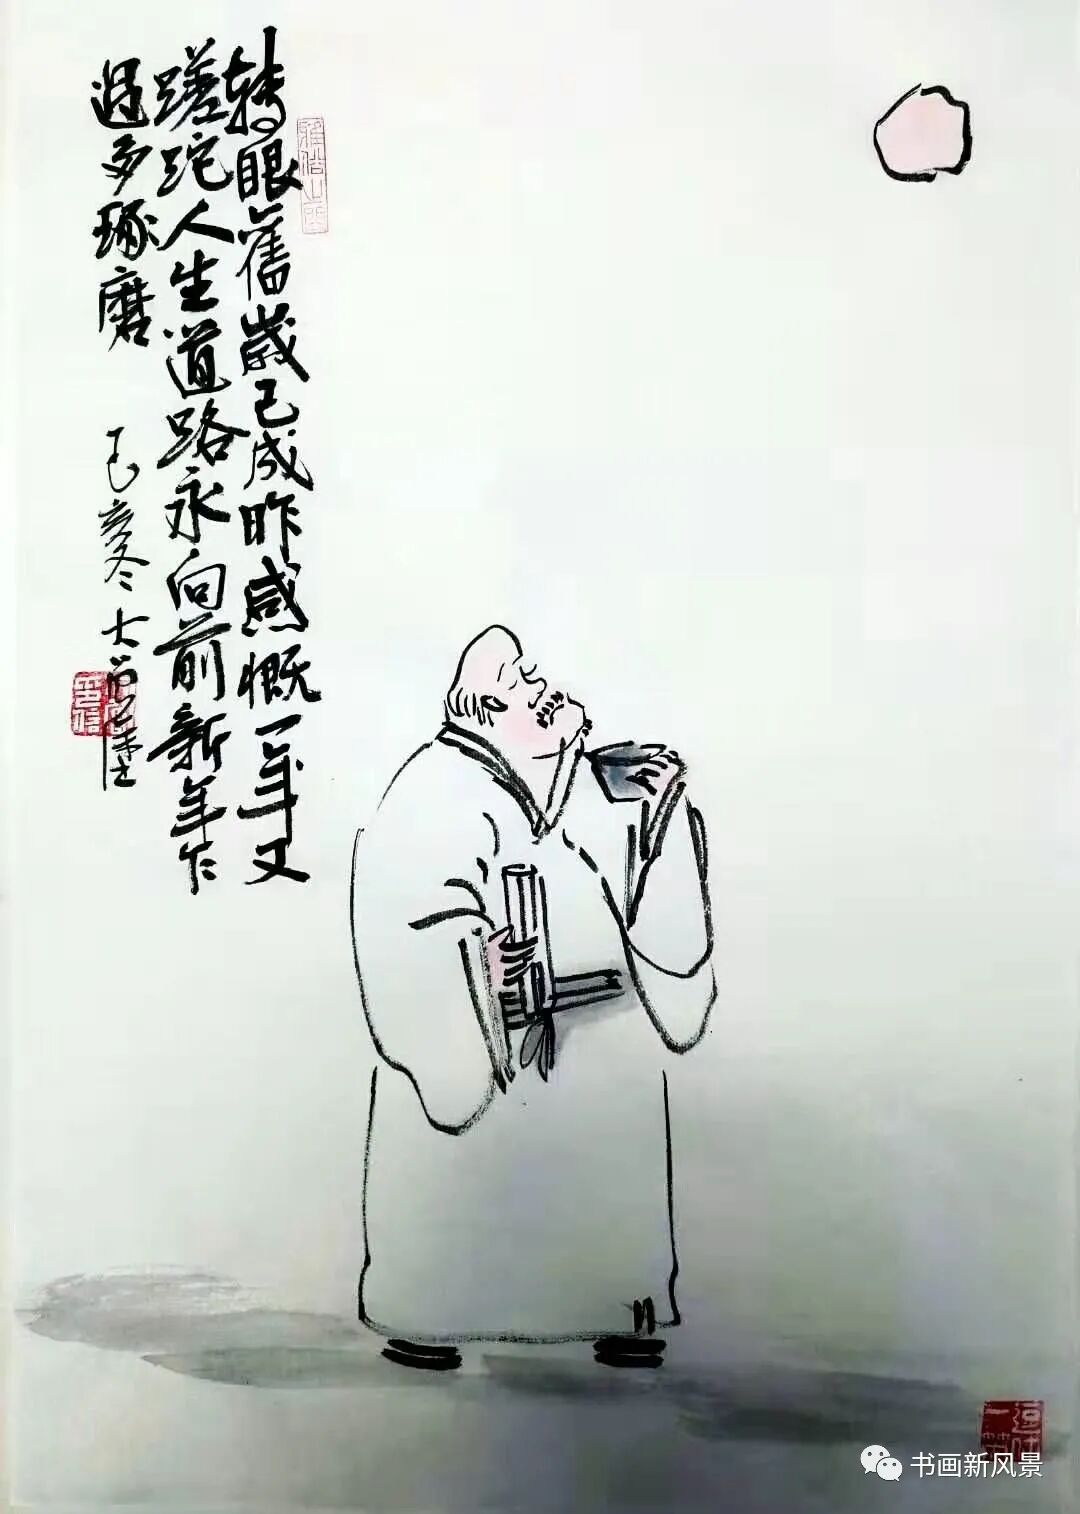 转眼舊歲已成昨感慨一年又
蹉跎人生道路永向前新年乍
过多琢磨
己亥冬
书画新风景